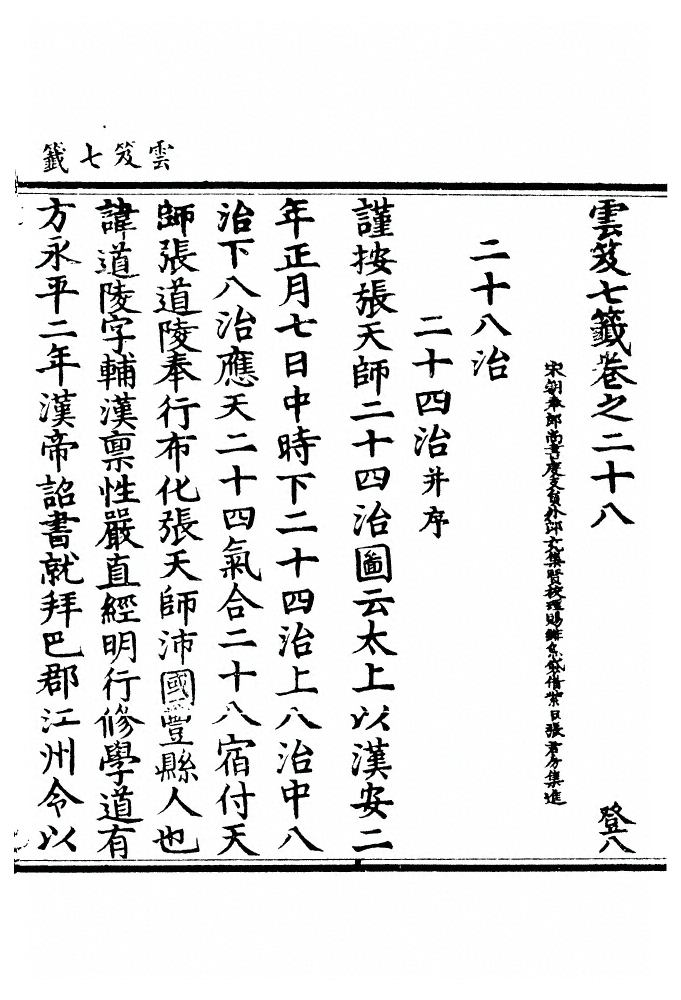 雲笈七籤
雲笈七籤卷之二十八 登八
宋朝奉郎尚書度支員外郎充集賢校理賜緋魚袋借紫臣張君房集進
二十八治
二十四治并序
謹按張天師二十四治圖云太上以漢安二
年正月七日中時下二十四治上八治中八
治下八治應天二十四氣合二十八宿付天
師張道陵奉行布化張天師沛國豐縣人也
諱道陵字輔漢禀性嚴直經明行修學道有
方永平二年漢帝詔書就拜巴郡江州令以